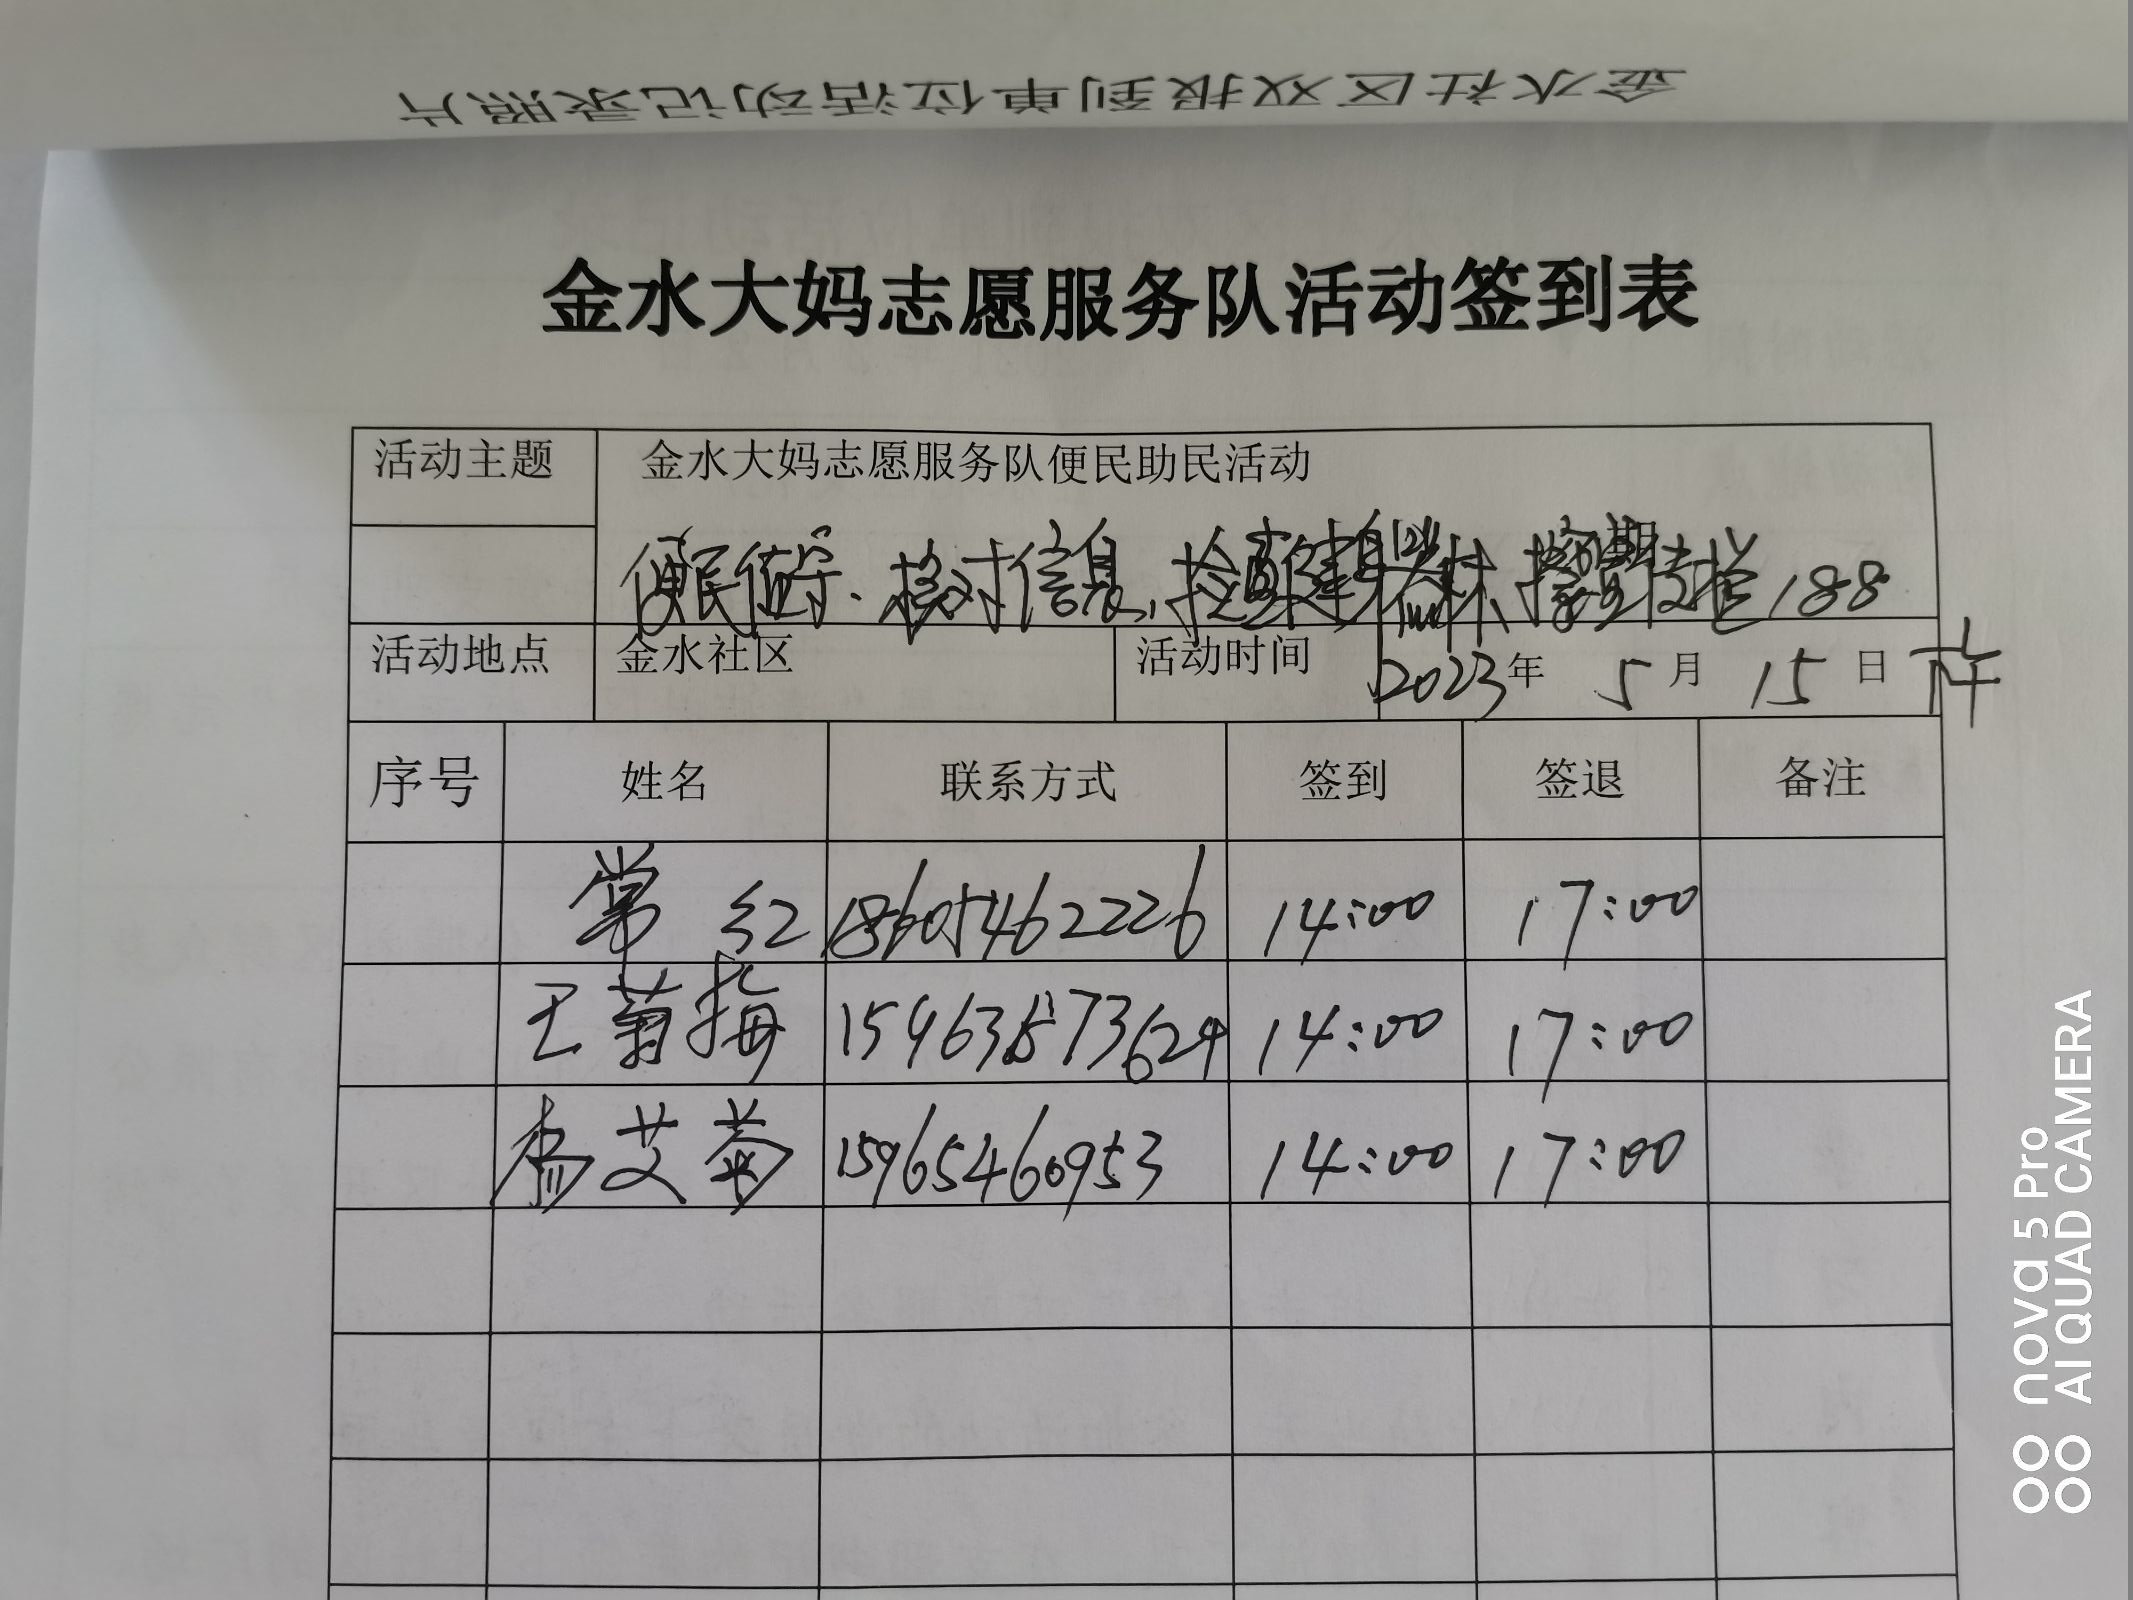 金水社区双报到单位活动记录照片
金水大妈志愿服务队活动签到表
活动主题 金水大妈志愿服务队便民助民活动
便民 核对信息, 检查健身器材 188
活动地点 金水社区 活动时间 2023年 5月 15日 下午
序号 姓名 联系方式 签到 签退 备注
常红 18605462226 14:00 17:00
王菊梅 14:00 17:00
杨艾菊 15965460953 14:00 17:00
nova 5 Pro
AI QUAD CAMERA